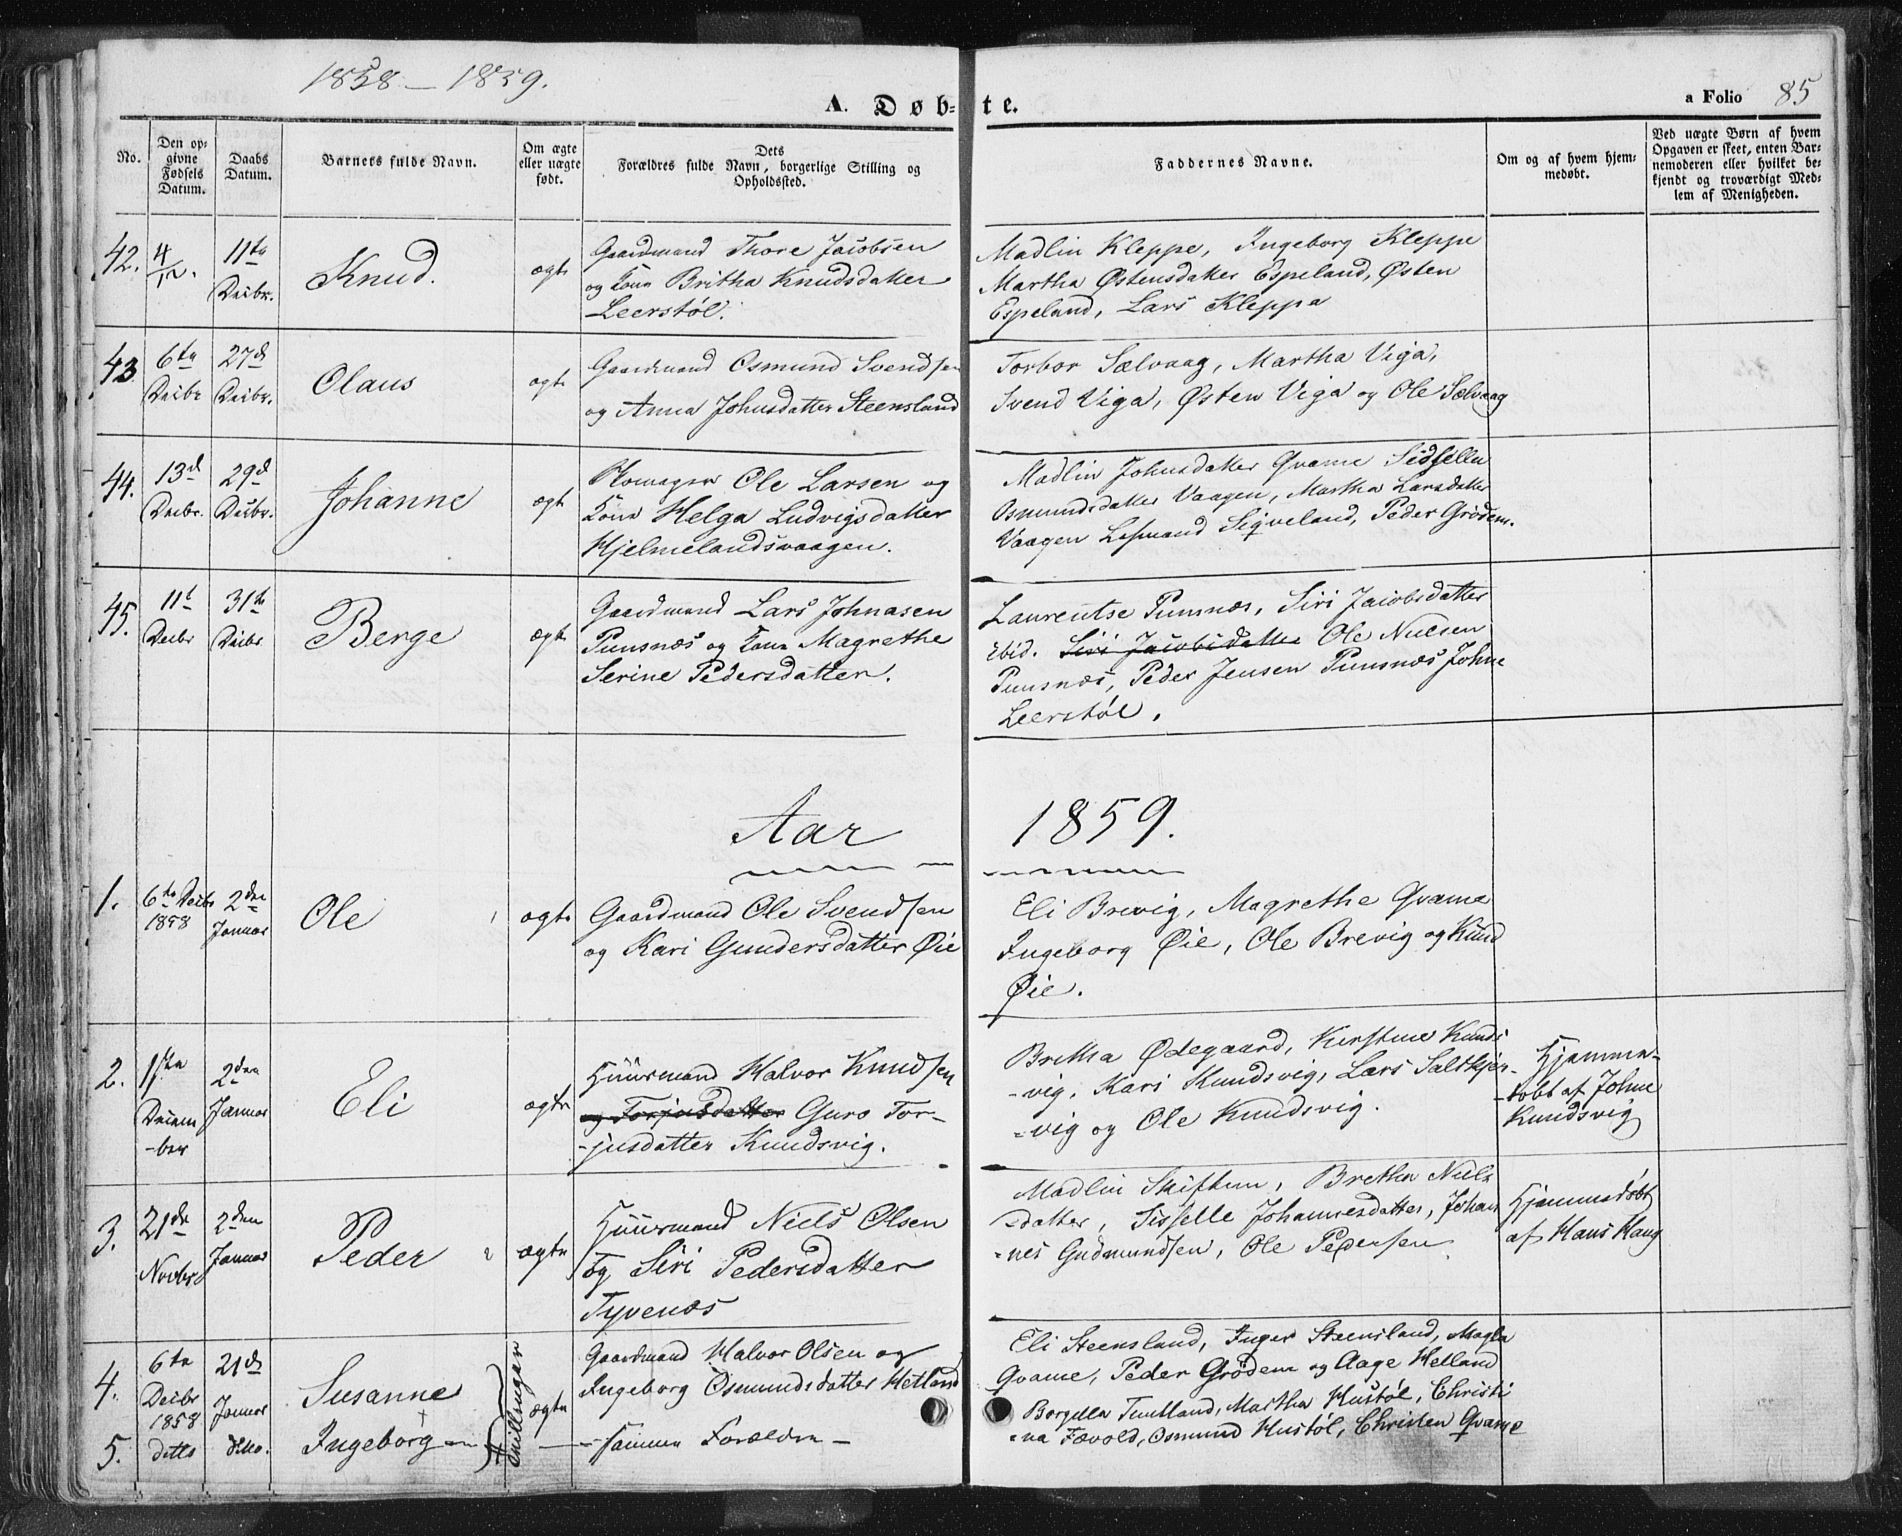 1858 – 1859.
A. Døb= te.
a Folio 85
No.
Den op=
givne
Fødsels
Datum.
Daabs
Datum.
Barnets fulde Navn.
Om ægte
eller uægte
født.
Dets
Forældres fulde Navn, borgerlige Stilling og
Opholdssted.
Faddernes Navne.
Om og af hvem hjem=
medøbt.
Ved uægte Børn af hvem
Opgaven er skeet, enten Bar=
nemoderen eller hvilket be=
kjendt og troværdigt Med=
lem af Menigheden.
42. 4/12. 11te Decbr. Knud. ægte
Gaardmand Thore Jacobsen
og Kone Britha Knudsdatter
Leerstøl.
Madlin Kleppe, Ingeborg Kleppe
Martha Østensdatter Espeland, Østen
Espeland, Lars Kleppa
43 6te Decbr 27d Decbr. Olaus ægte
Gaardmand Osmund Svendsen
og Anna Johnsdatter Steensland
Torbor Sælvaag, Martha Viga,
Svend Viga, Østen Viga og Ole Sælvaag
44. 13d Decbr. 29d Decbr. Johanne ægte
Ole Larsen og
Kone Helga Ludvigsdatter
Hjelmelandsvaagen.
Madlin Johnsdatter Qvame Sidselle
Osmundsdatter Vaagen, Martha Larsdatter
Vaagen Siqveland, Peder Grødem.
45. 11t Decbr 31te Decbr Berge ægte
Gaardmand Lars Johnasen
Punsnæs og Kone Magrethe
Serine Pedersdatter.
Laurentse Punsnæs, Siri Jacobsdatter
ibid. Siri Jacobsdatter Ole Nielsen
Punsnæs, Peder Jensen Punsnæs John
Leerstøl.
Aar 1859.
1. 6te Decbr 1858 2den Januar Ole ægte
Gaardmand Ole Svendsen
og Kari Gundersdatter Øie
Eli Brevig, Magrethe Qvame
Ingeborg Øie, Ole Brevig og Knud
Øie.
2. 1ste Decem-ber 2den Januar Eli ægte
Huusmand Halvor Knudsen
og Torjusdatter Guro Tor-
-jusdatter Knudsvig.
Britha Ødegaard, Kirstine Knuds
-vig, Kari Knudsvig, Lars Saltkjer-
-vig og Ole Knudsvig.
Hjemme-
-døbt af Johne
Knudsvig
3. 21de Novbr. 2den Januar Peder 2 ægte
Huusmand Niels Olsen
og Siri Pedersdatter
Tyvenæs
Madlin Skiftun, Bretha Niels
-datter, Sisselle Johannesdatter, Johan
-nes Gudmundsen, Ole Pedersen
Hjemmedøbt
af Hans Haug
4. 6te Decbr 1858 21de Januar Susanne Tvillinger ægte
Gaardmand Halvor Olsen og
Ingeborg Osmundsdatter Hetland
Eli Steensland, Inger Steensland, Magla
Qvame, Peder Grødem og Aage Hetland
5. ditto ditto. Ingeborg
– samme Forældre –
Borgilla Tuntland, Martha Hustøl, Christi
-na Fævold, Osmund Hustøl, Christen Qvame